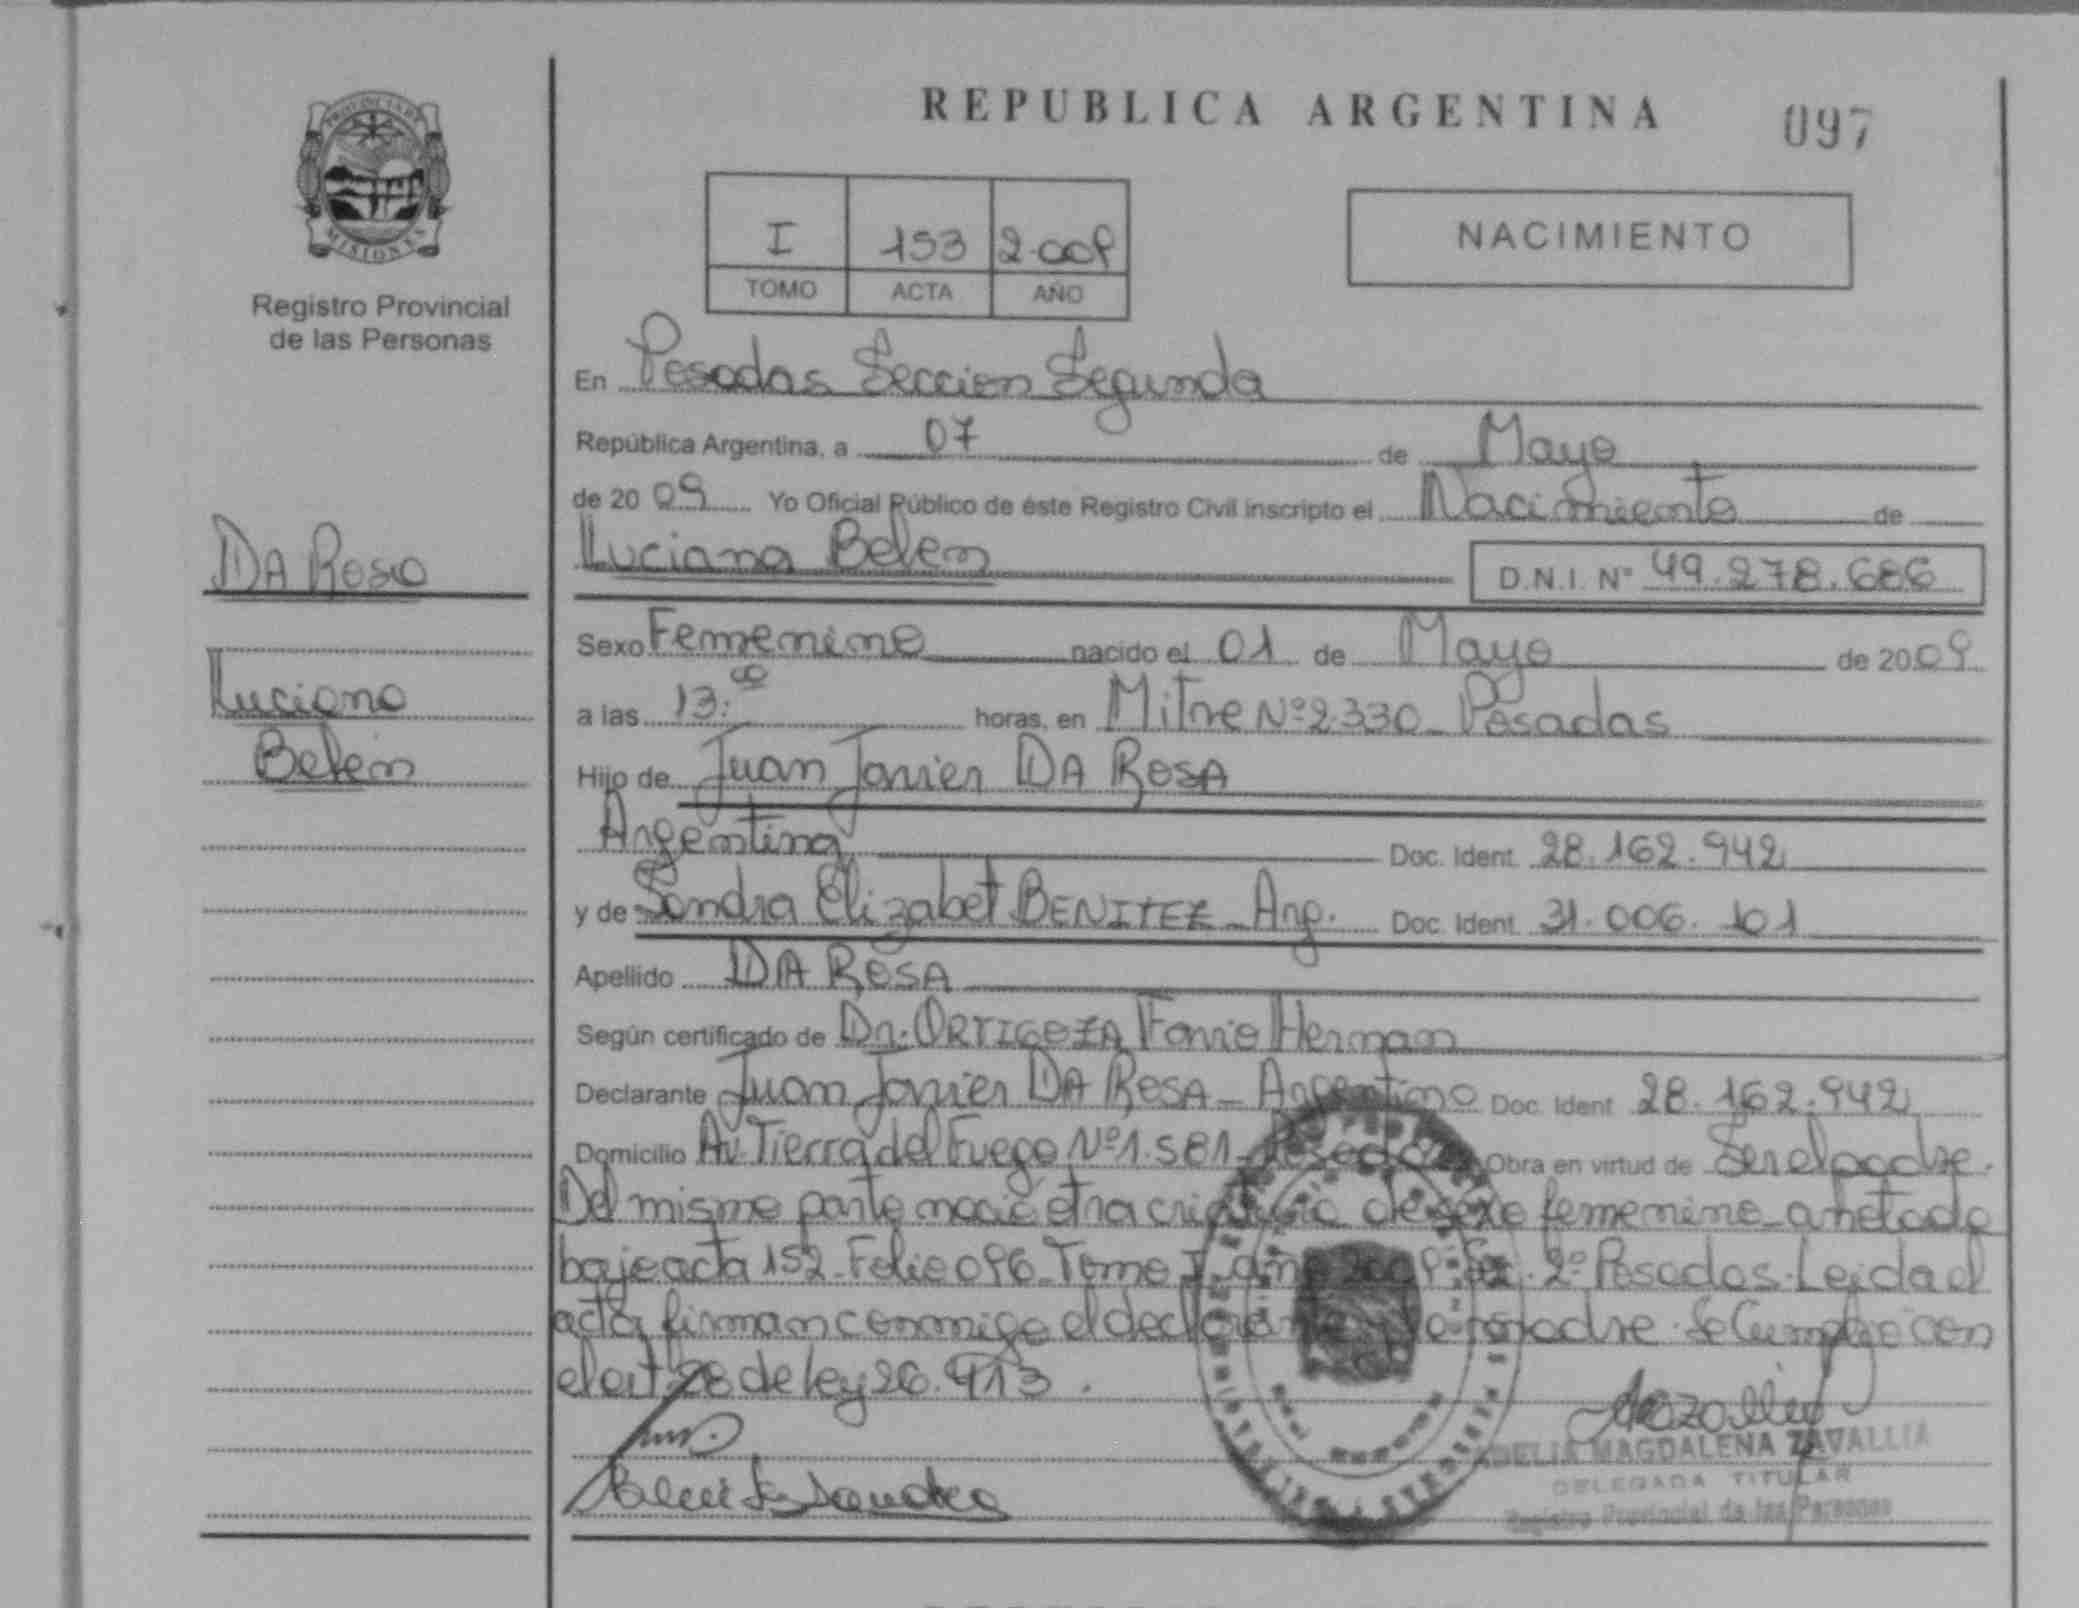 REPUBLICA ARGENTINA
097
PROVINCIA DE
MISIONES
Registro Provincial
de las Personas
I 153 2.009
TOMO ACTA AÑO
NACIMIENTO
En Posadas Seccion Segunda
República Argentina, a 07 de Mayo
de 2009 Yo Oficial Público de éste Registro Civil inscripto el Nacimiento de
DA Rosa
Luciana Belen
D.N.I. Nº 49.278.686
Sexo Femenino nacido el 01 de Mayo de 2009
Luciana
a las 13.00 horas, en Mitre Nº 2.330 - Posadas
Belén
Hijo de Juan Javier DA ROSA
Argentina Doc. Ident. 28.162.942
y de Sandra Elizabet BENITEZ - Arg. Doc. Ident. 31.006.101
Apellido DA ROSA
Según certificado de Dr. ORTIGOZA Hernan
Declarante Juan Javier DA ROSA - Argentino Doc. Ident 28.162.942
Domicilio Av. Tierra del Fuego Nº 1.581 - Posadas Obra en virtud de Ser el padre.
Del mismo parto nacio otra criatura de sexo femenino - anotada
bajo acta 152 - Folio 096 - Tomo I - año 2009 - Sec. 2º Posadas. Leida el
acta firman conmigo el declarante y la madre. Se Cumplio con
el art. 28 de ley 26.413.
Benitez Sandra
ADELIA MAGDALENA ZAVALLIA
DELEGADA TITULAR
Registro Provincial de las Personas